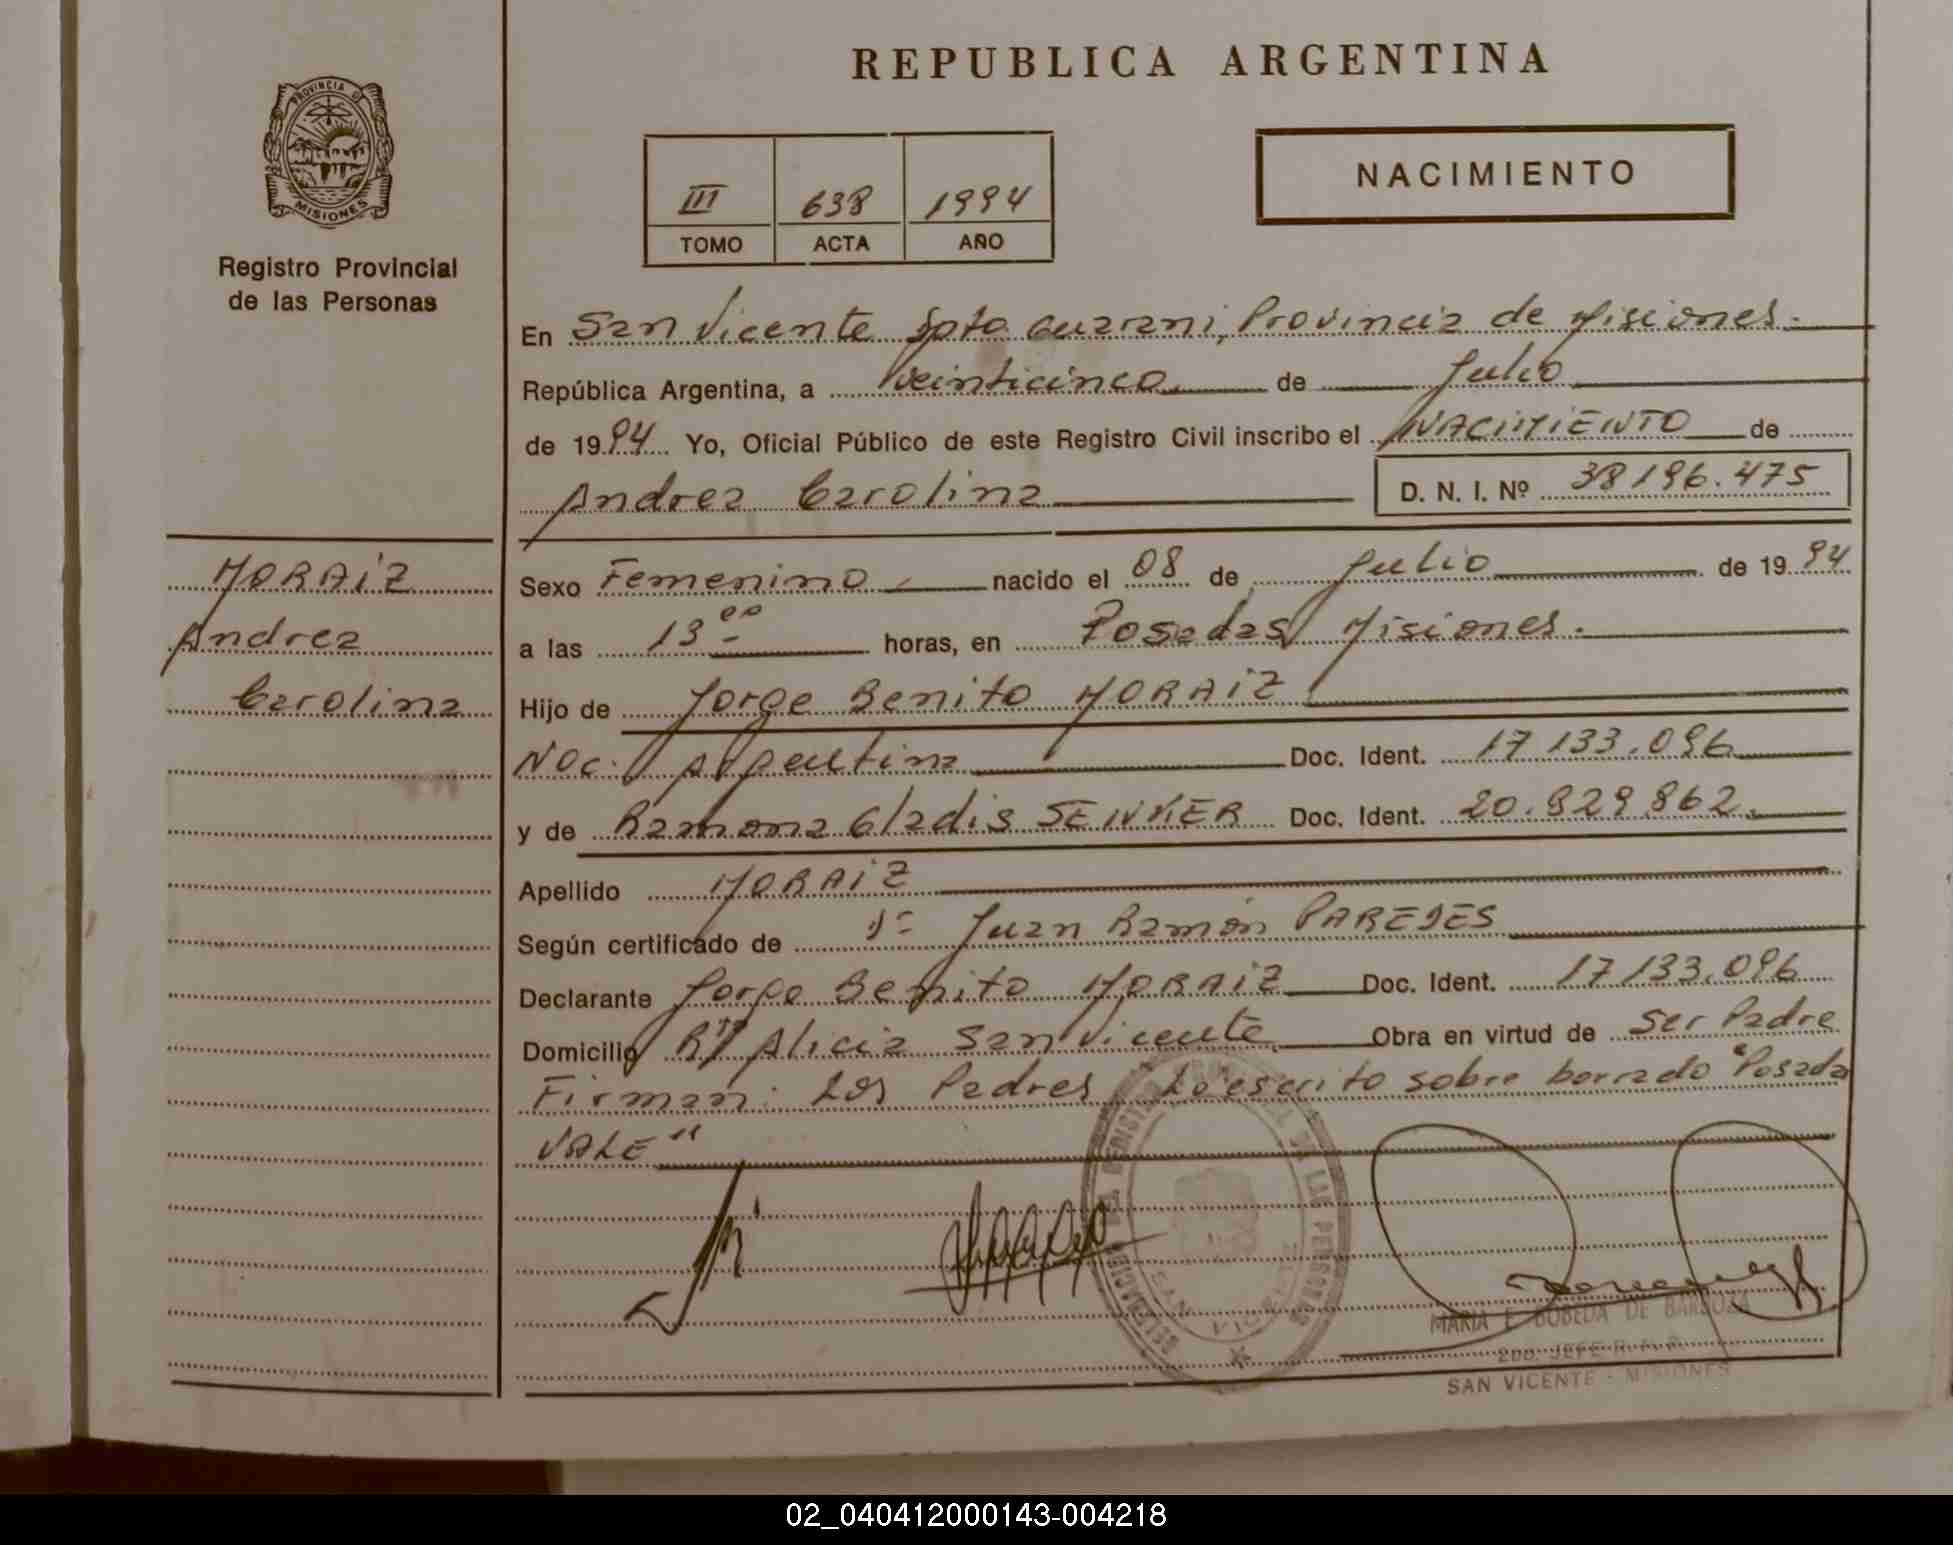 REPUBLICA ARGENTINA
PROVINCIA DE
MISIONES
Registro Provincial
de las Personas
III 638 1994
TOMO ACTA AÑO
NACIMIENTO
En San Vicente Dpto Guarani, Provincia de Misiones.
República Argentina, a veinticinco de Julio
de 1994 Yo, Oficial Público de este Registro Civil inscribo el NACIMIENTO de
Andrea Carolina D. N. I. Nº 38196.475
MORAIZ
Andrea
Carolina
Sexo Femenino nacido el 08 de Julio de 1994
a las 13 00 horas, en Posadas Misiones.
Hijo de Jorge Benito MORAIZ
Nac. Argentina Doc. Ident. 17133.096
y de Ramona Gladis SENKER Doc. Ident. 20.829.862.
Apellido MORAIZ
Según certificado de Dr Juan Ramón PAREDES
Declarante Jorge Benito MORAIZ Doc. Ident. 17133.096
Domicilio Alicia San Vicente Obra en virtud de Ser Padre
Firman: Los Padres Lo escrito sobre borrado "Posadas
VALE"
REGISTRO PROVINCIAL DE LAS PERSONAS
MARIA E. BOBEDA DE BARBOZA
2DO. JEFE R. P. P.
SAN VICENTE - MISIONES
02_040412000143-004218